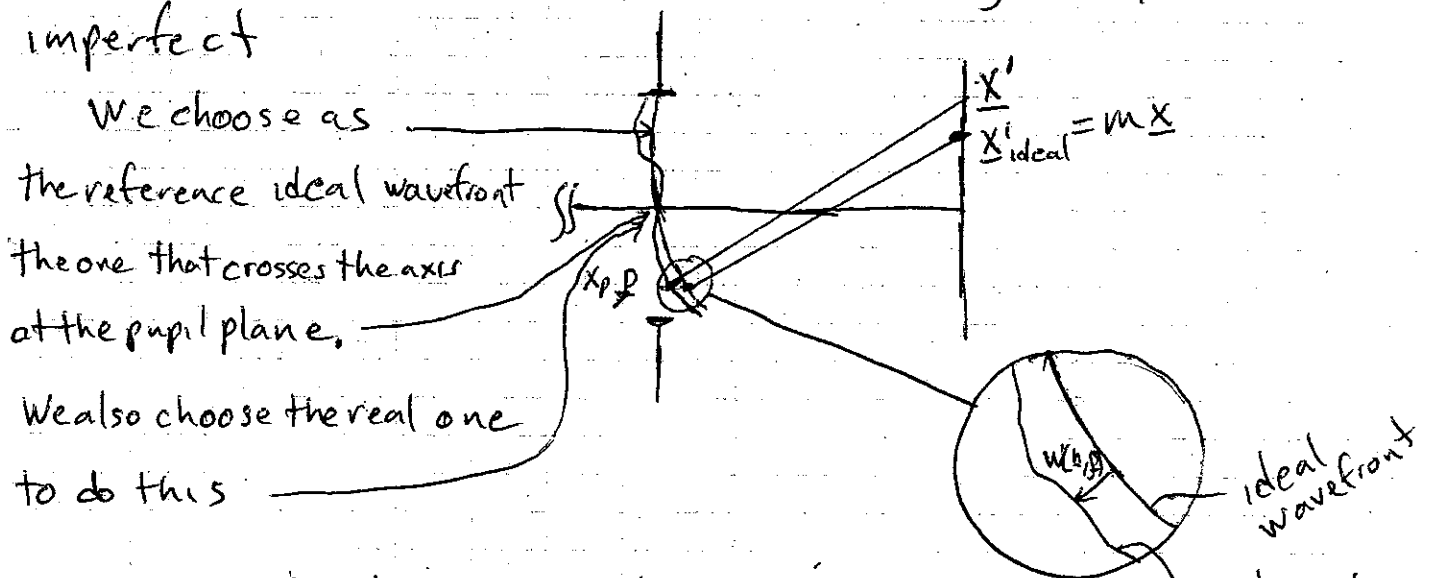 imperfect
We choose as
the reference ideal wavefront
the one that crosses the axis
at the pupil plane.
We also choose the real one
to do this
X'
X'ideal = m X
xp ρ
W(h,ρ)
ideal
wavefront